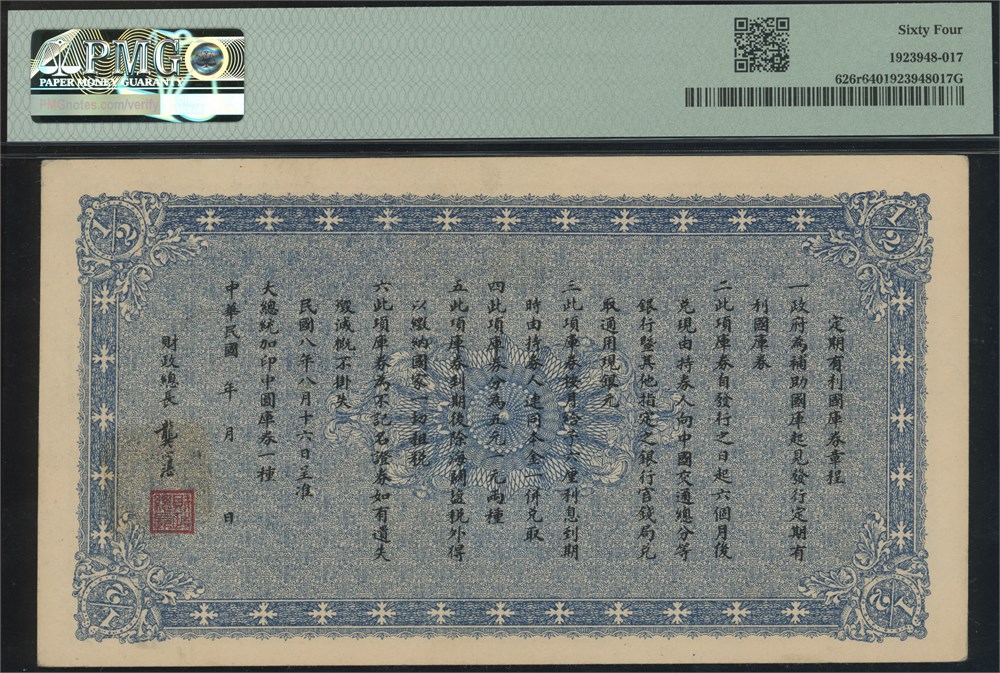 PMG
PAPER MONEY GUARANTY
PMGnotes.com/verify
Sixty Four
1923948-017
626r6401923948017G
1/2
1/2
定期有利國庫券章程
一政府為補助國庫起見發行定期有
利國庫券
二此項庫券自發行之日起六個月後
兌現由持券人向中國交通總分等
銀行暨其他指定之銀行官錢局兌
取通用現銀元
三此項庫券按月給予六厘利息到期
時由持券人連同本金一併兌取
四此項庫券分為五元一元兩種
五此項庫券到期後除海關鹽稅外得
以繳納國家一切租稅
六此項庫券為不記名證券如有遺失
燬滅概不掛失
民國八年八月十六日呈准
大總統加印中國庫券一種
中華民國 年 月 日
財政總長 龔心湛
1/2
1/2